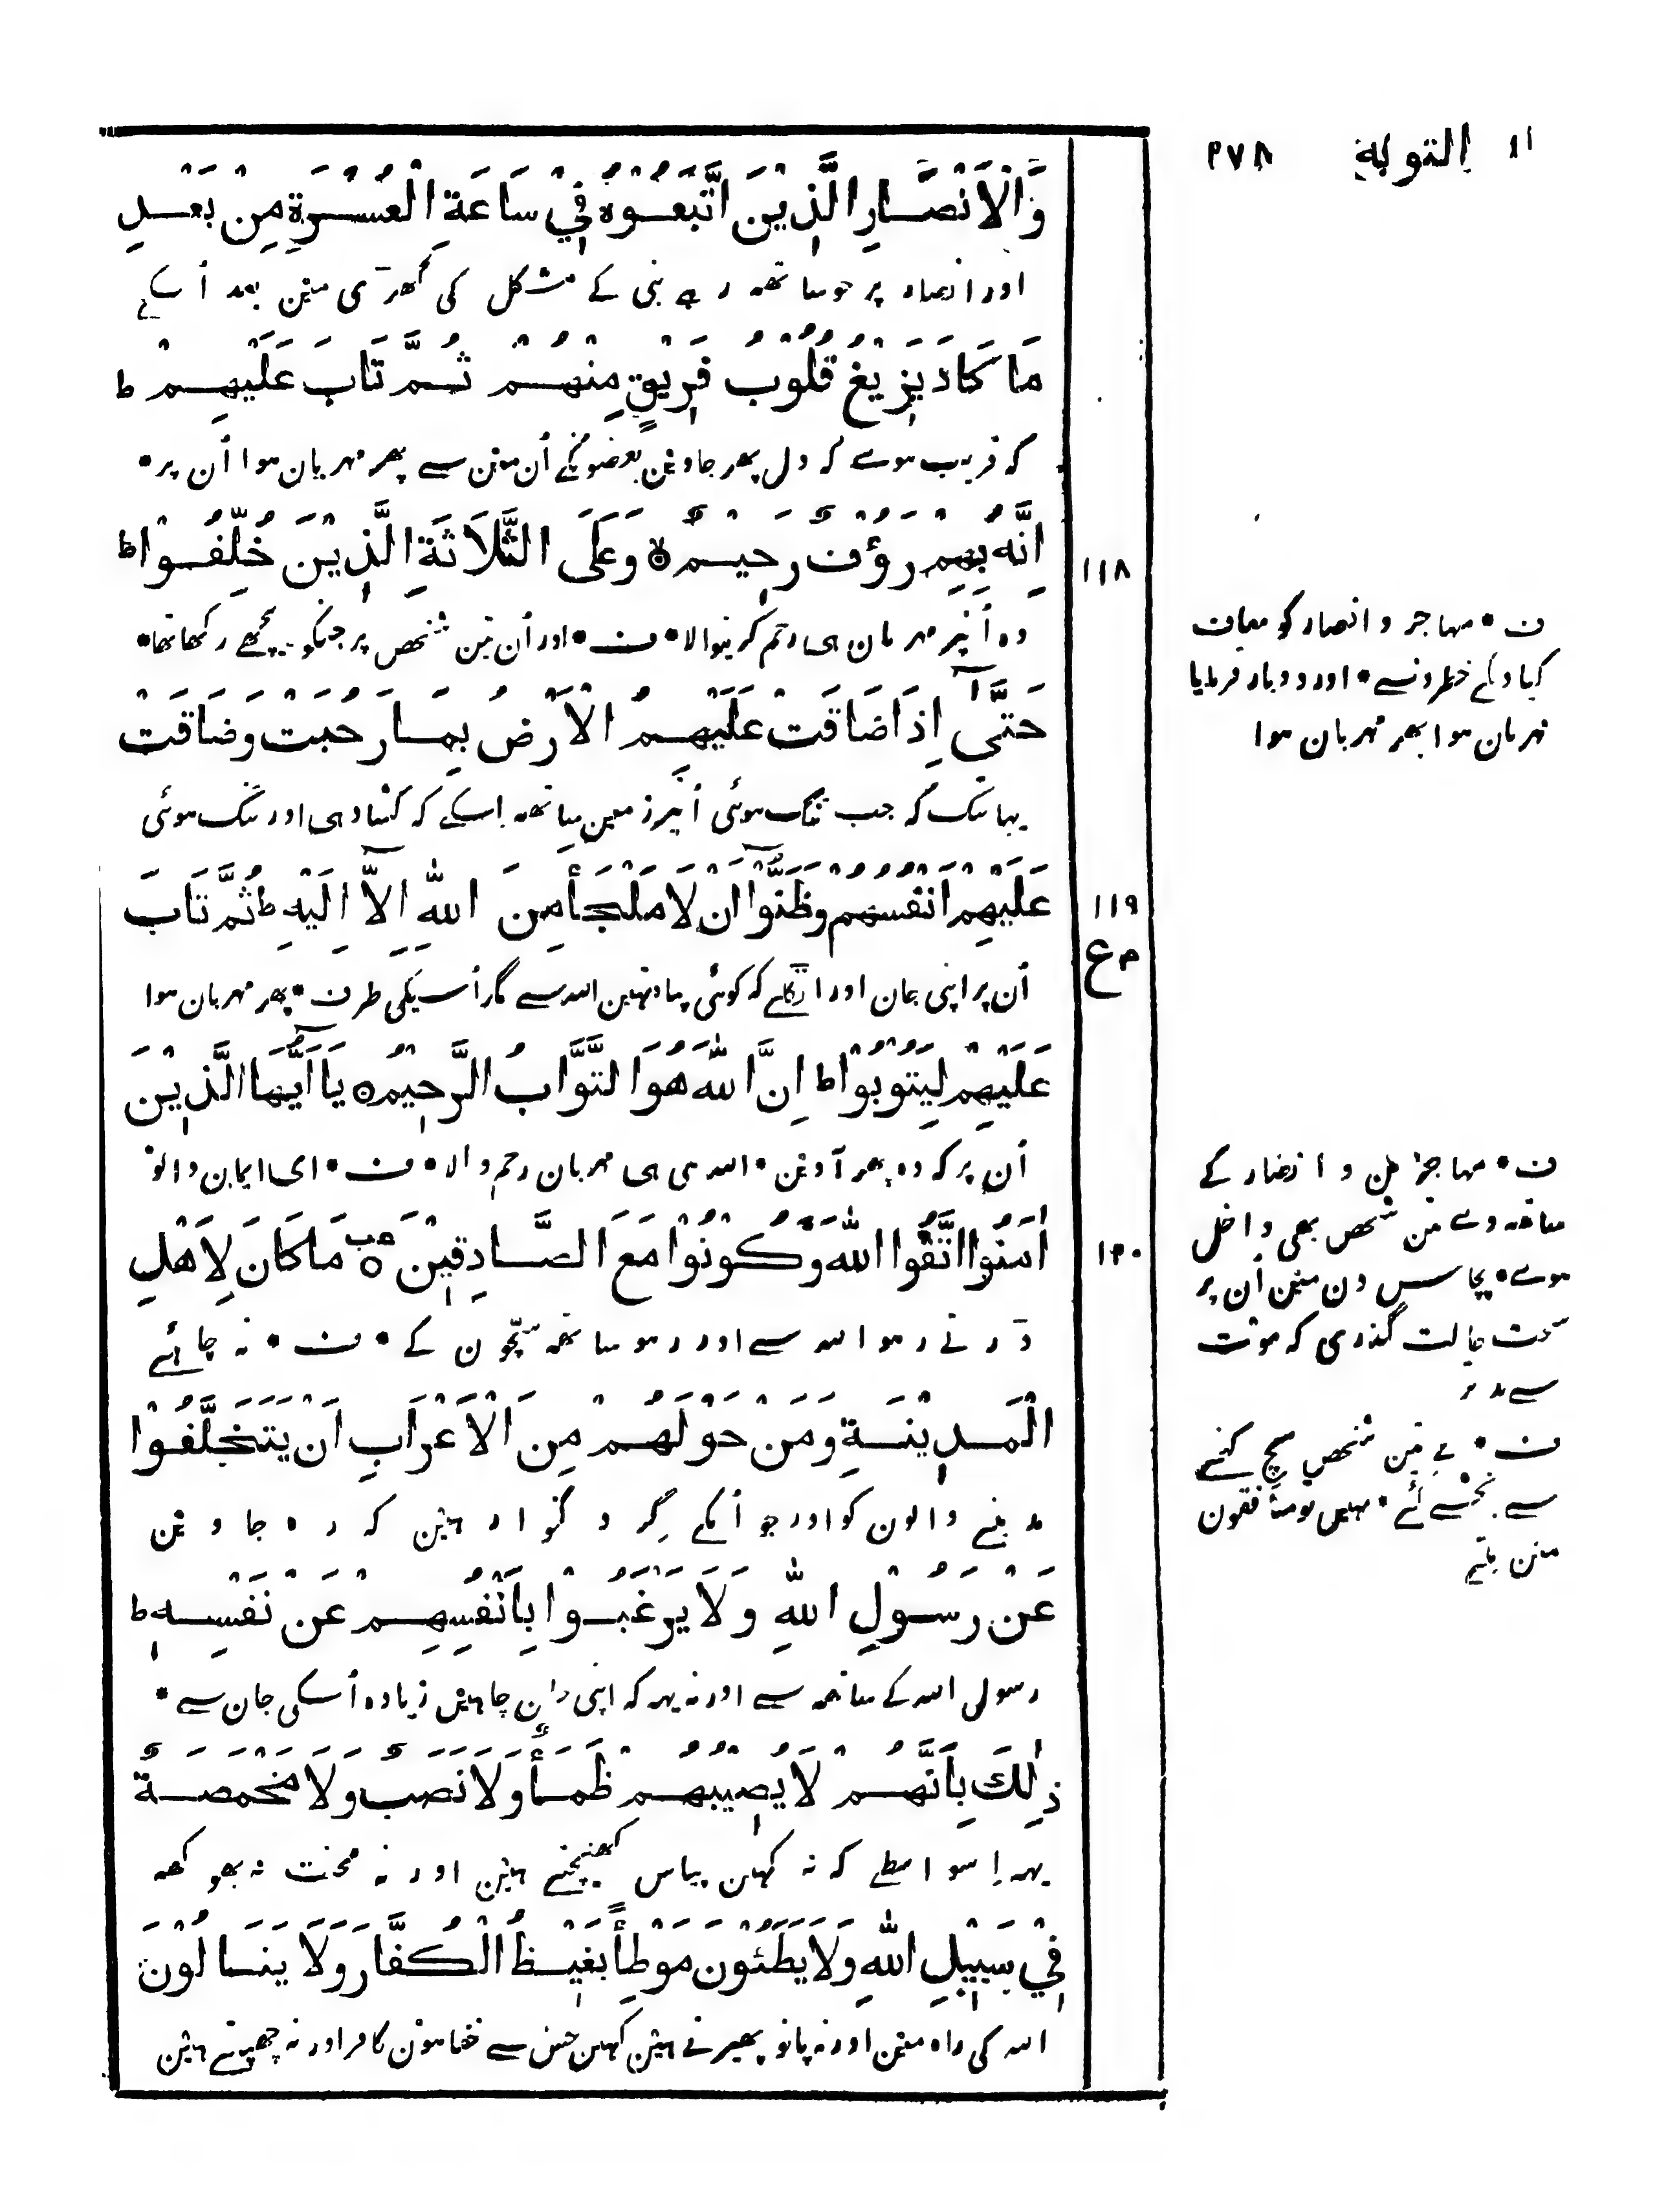 ١١ التوبة ٢٧٨
وَّالْاَنْصَارِ الَّذِيْنَ اتَّبَعُوْهُ فِيْ سَاعَةِ الْعُسْرَةِ مِنْ بَعْدِ
اور انصار پر جو ساتھہ رہے نبی کے مشکل کی گھڑی مین بعد اُسکے
مَا كَادَ يَزِيْغُ قُلُوْبُ فَرِيْقٍ مِنْهُمْ ثُمَّ تَابَ عَلَيْهِمْ ط
کہ قریب ہوے کہ دل پھر جاوین بعضونکے اُن مین سے پھر مہربان ہوا اُن پر •
اِنَّهُ بِهِمْ رَؤُفٌ رَحِيْمٌ ۵ وَعَلَى الثَّلَاثَةِ الَّذِيْنَ خُلِّفُوْا ط
١١٨
وہ اُنپر مہربان ہی رحم کرنیوالا • ف • اور اُن تین شخص پر جنکو پیچھے رکھا تھا •
حَتَّىٓ اِذَا ضَاقَتْ عَلَيْهِمُ الْاَرْضُ بِمَا رَحُبَتْ وَضَاقَتْ
یہانتک کہ جب تنگ ہوئی اُنپر زمین ساتھہ اِسکے کہ کشادہ ہی اور تنگ ہوئی
عَلَيْهِمْ اَنْفُسُهُمْ وَظَنُّوْٓا اَنْ لَا مَلْجَأَ مِنَ اللّٰهِ اِلَّٓا اِلَيْهِ ط ثُمَّ تَابَ
١١٩
٣ ع
اُن پر اپنی جان اور اٹکلے کہ کوئی پناہ نہین اللہ سے مگر اُسیکی طرف • پھر مہربان ہوا
عَلَيْهِمْ لِيَتُوْبُوْا ط اِنَّ اللّٰهَ هُوَ التَّوَّابُ الرَّحِيْمُ ۵ يَا اَيُّهَا الَّذِيْنَ
اُن پر کہ وہ پھر آوین • اللہ ہی ہی مہربان رحم والا • ف • ای ایمان والو
اٰمَنُوا اتَّقُوا اللّٰهَ وَكُوْنُوْا مَعَ الصَّادِقِيْنَ ۵ مَا كَانَ لِاَهْلِ
١٢٠
ڈرتے رہو اللہ سے اور رہو ساتھہ سچّون کے • ف • نہ چاہئے
الْمَدِيْنَةِ وَمَنْ حَوْلَهُمْ مِنَ الْاَعْرَابِ اَنْ يَتَخَلَّفُوْا
مدینے والون کو اور جو اُنکے گِرد گنوار ہین کہ رہ جاوین
عَنْ رَسُوْلِ اللّٰهِ وَلَا يَرْغَبُوْا بِاَنْفُسِهِمْ عَنْ نَفْسِهٖ ط
رسول اللہ کے ساتھہ سے اور نہ یہہ کہ اپنی جان چاہین زیادہ اُسکی جان سے •
ذٰلِكَ بِاَنَّهُمْ لَا يُصِيْبُهُمْ ظَمَأٌ وَلَا نَصَبٌ وَلَا مَخْمَصَةٌ
یہہ اِسواسطے کہ نہ کہین پیاس کھینچتے ہین اور نہ محنت نہ بھوکھہ
فِيْ سَبِيْلِ اللّٰهِ وَلَا يَطَئُوْنَ مَوْطِأً يَغِيْظُ الْكُفَّارَ وَلَا يَنَالُوْنَ
اللہ کی راہ مین اور نہ پانو پھیرتے ہین کہین جس سے خفا ہون کافر اور نہ چھینتے ہین
ف • مہاجر و انصار کو معاف
کیا دلکے خطرونسے • اور دوبار فرمایا
مہربان ہوا پھر مہربان ہوا
ف • مہاجرین و انصار کے
ساتھہ وے تین شخص بھی داخل
ہوے • پچاس دن مین اُن پر
سخت حالت گذری کہ موت
سے بدتر
ف • یے تین شخص سچ کہنے
سے بخشے گئے • نہین تو منافقون
مین ملتے